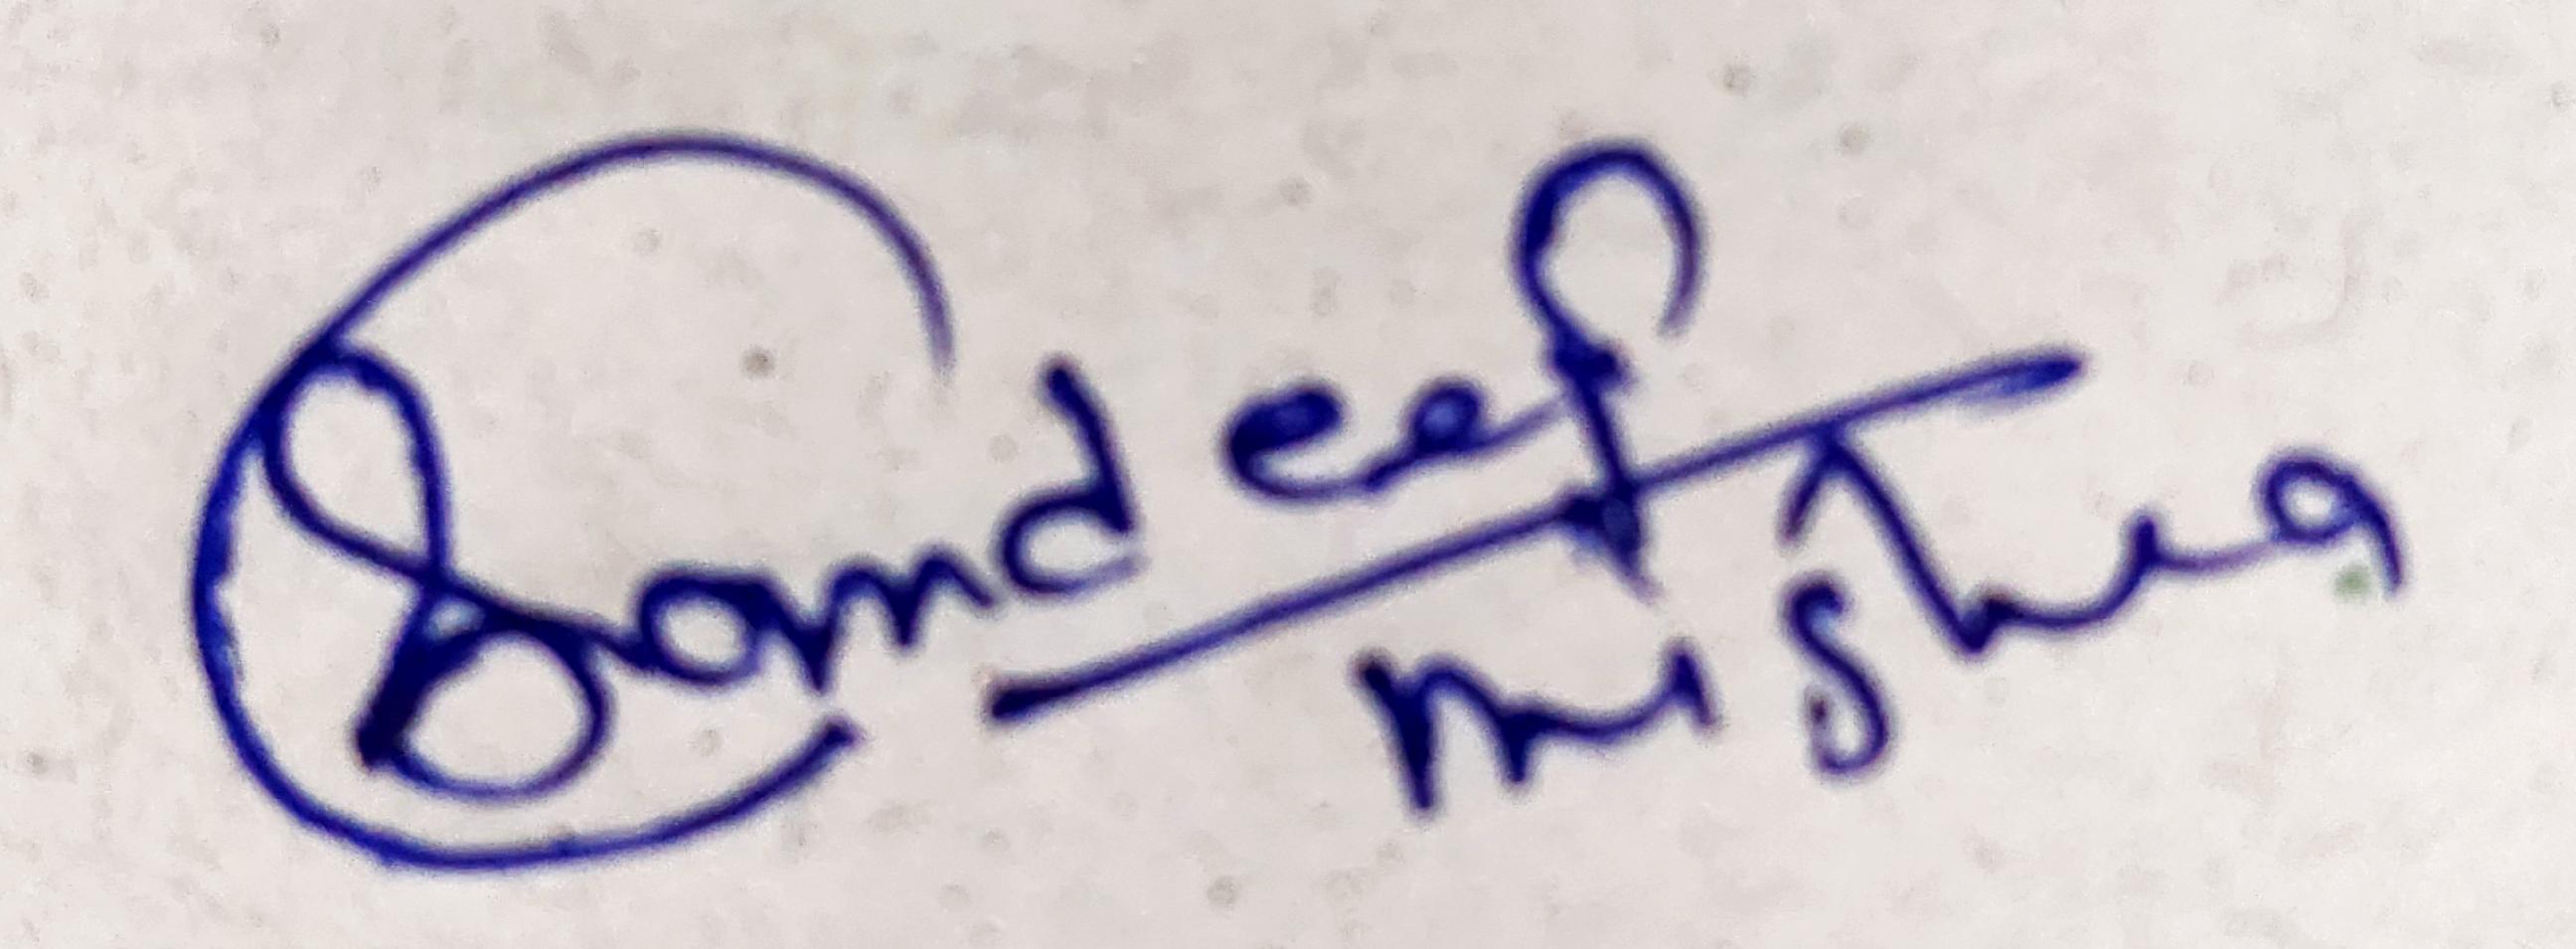 Sandeep
Mishra